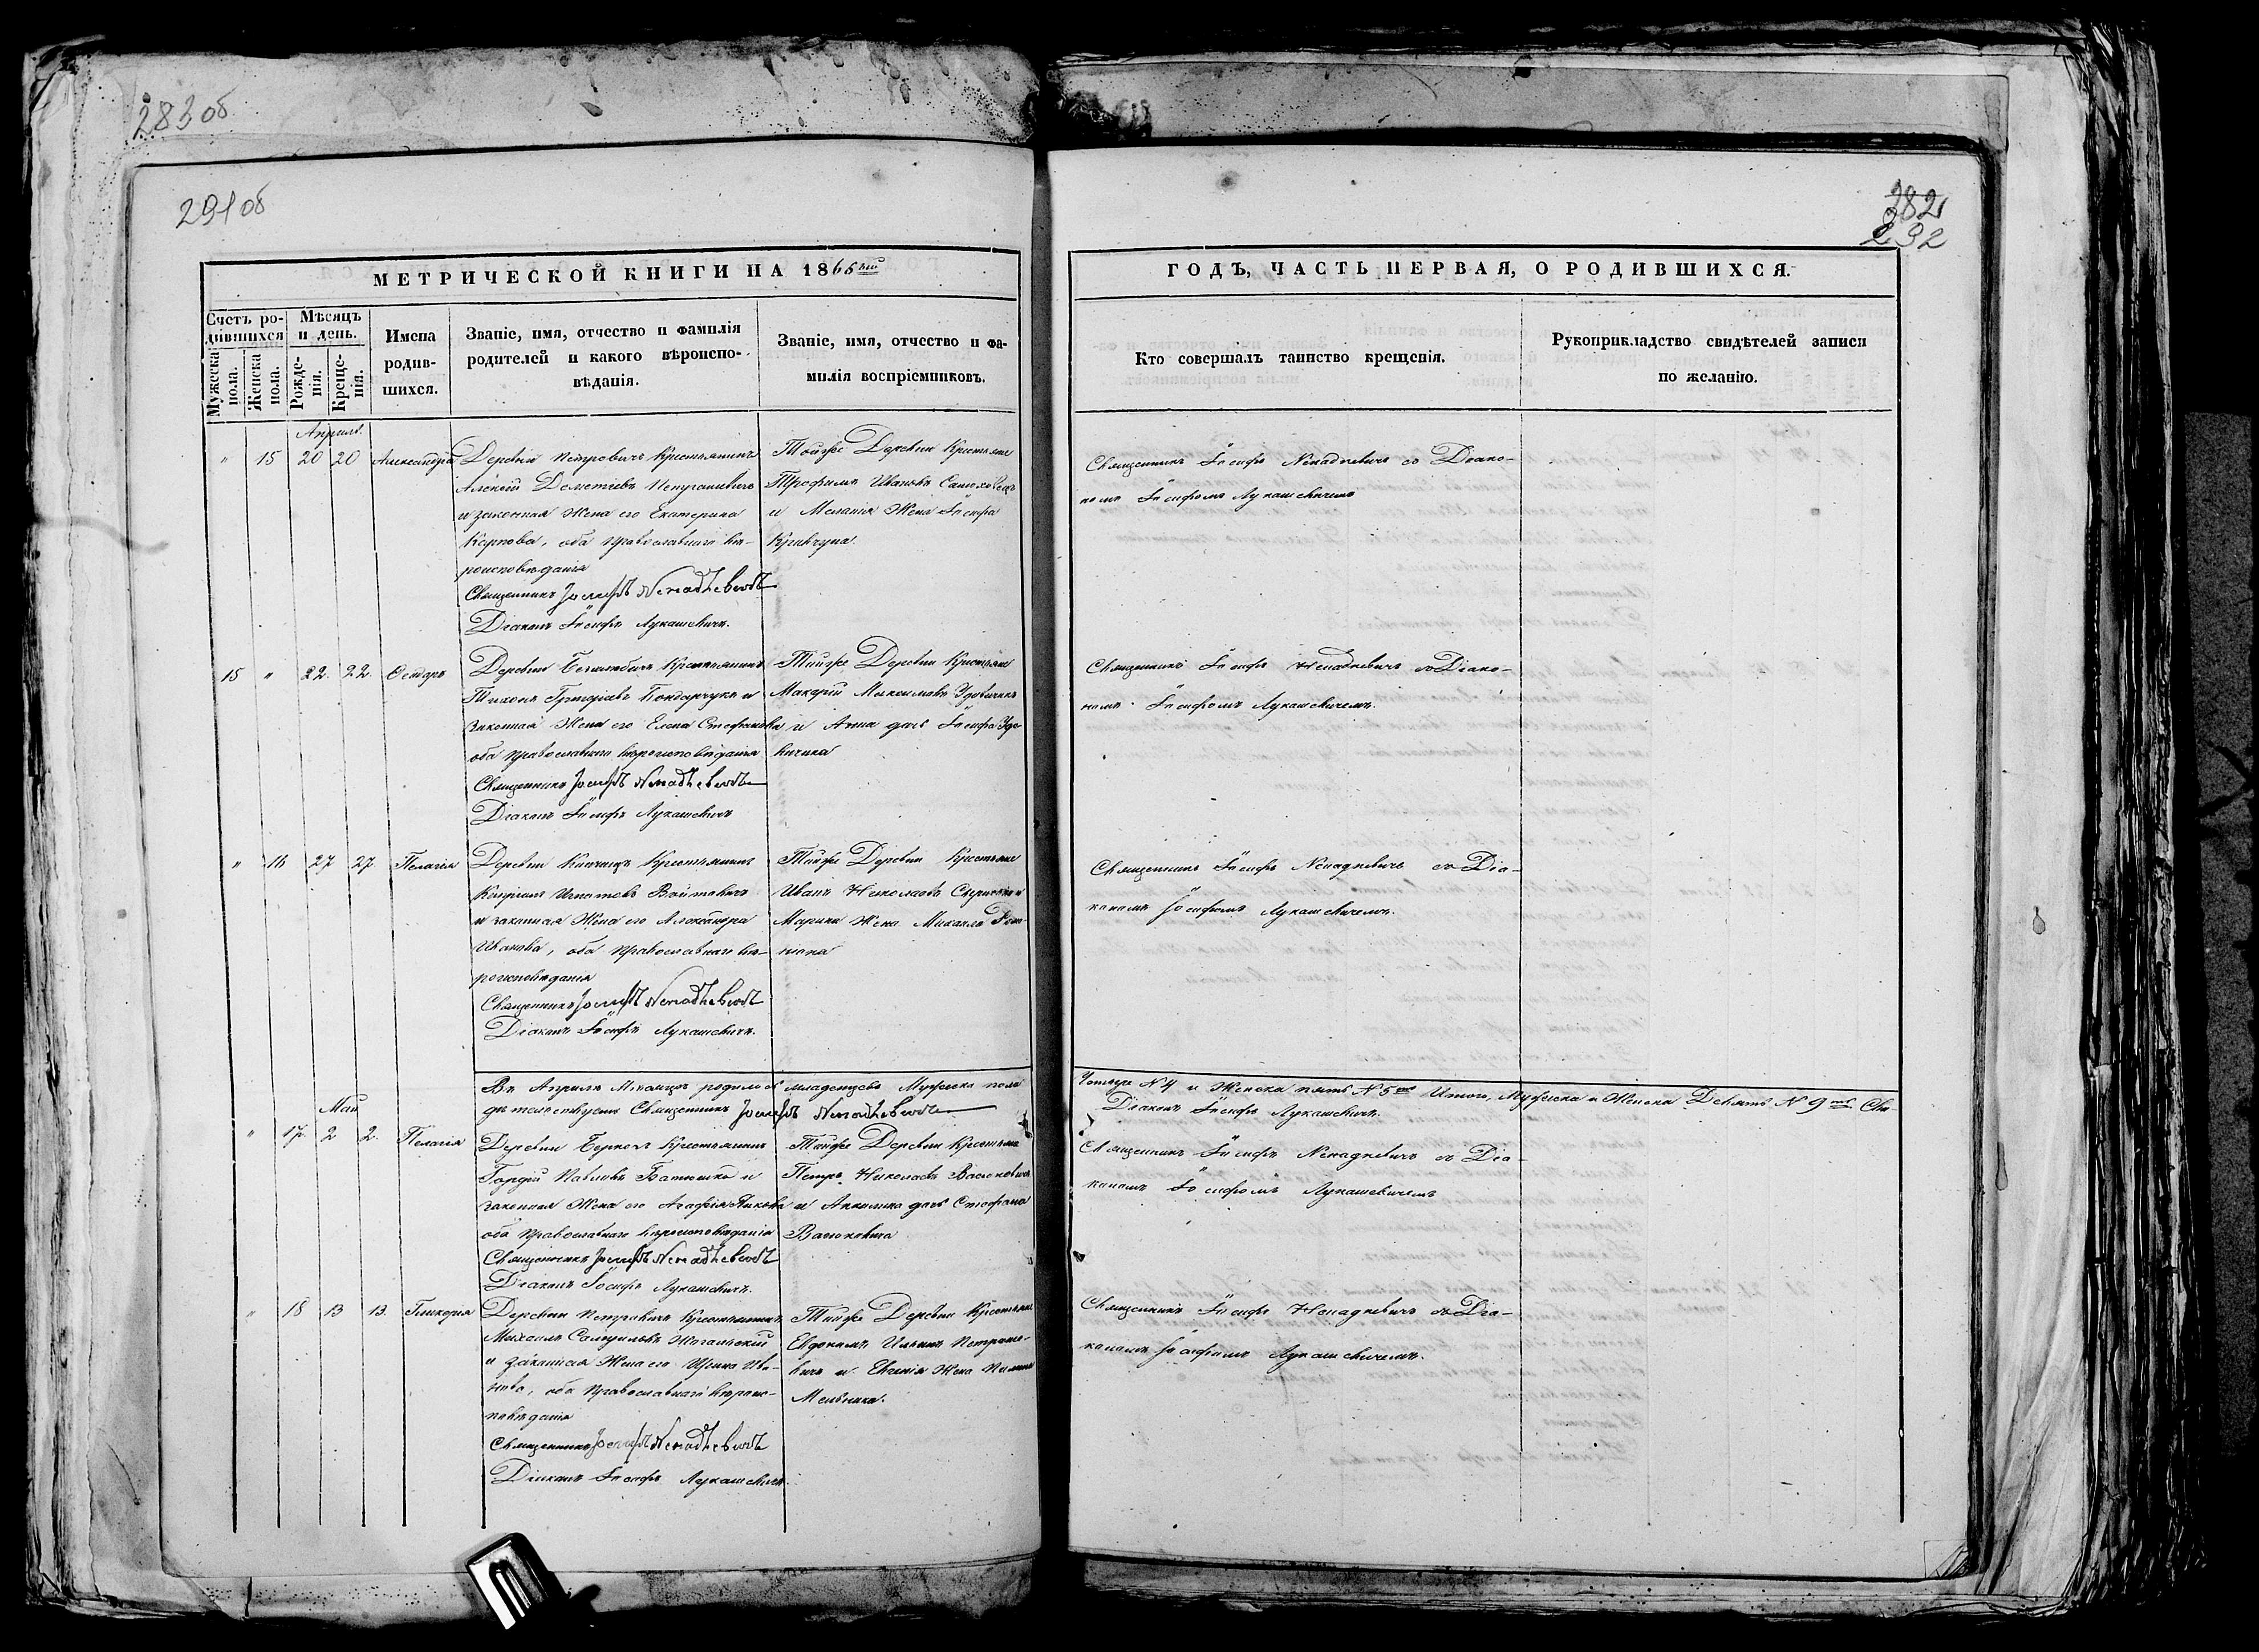 283 об
291 об
282
292
МЕТРИЧЕСКОЙ КНИГИ НА 1866 ый
ГОДЪ, ЧАСТЬ ПЕРВАЯ, О РОДИВШИХСЯ.
Счетъ родившихся
Мужеска пола.
Женска пола.
Мѣсяцъ и день.
Рожденія.
Крещенія.
Имена родившихся.
Званіе, имя, отчество и фамилія
родителей и какого вѣроисповѣданія.
Званіе, имя, отчество и фамилія воспріемниковъ.
Кто совершалъ таинство крещенія.
Рукоприкладство свидѣтелей записи
по желанію.
Апрѣль.
" 15 20 20 Александра
Деревни Петровичъ Крестьянинъ
Алексій Деметіевъ
и законная Жена его Екатерина
Карпова, оба Православнаго вѣ-
роисповѣданія
Священникъ Іосифъ Ненадкевичъ
Діаконъ Іосифъ Лукашевичъ.
Тойже Деревни Крестьяне
Трофимъ Ивановъ
и Меланія Жена Іосифа
Кравчука
Священникъ Іосифъ Ненадкевичъ со Діако-
номъ Іосифомъ Лукашевичемъ
15 " 22. 22.
Деревни Крестьянинъ
Тихонъ Григоріевъ Бондарчукъ и
законная Жена его Елена Стефанова
оба Православнаго вѣроисповѣданія
Священникъ Іосифъ Ненадкевичъ
Діаконъ Іосифъ Лукашевичъ
Тойже Деревни Крестьяне
Макарій Максимовъ
и Анна дочь Іосифа
Священникъ Іосифъ Ненадкевичъ со Діако-
номъ Іосифомъ Лукашевичемъ.
" 16 27 27. Пелагія
Деревни Крестьянинъ
Игнатовъ Войтовичъ
и законная Жена его Александра
Иванова, оба Православнаго вѣ-
роисповѣданія
Священникъ Іосифъ Ненадкевичъ
Діаконъ Іосифъ Лукашевичъ.
Тойже Деревни Крестьяне
Иванъ Николаевъ
Марина Жена Михаила
Священникъ Іосифъ Ненадкевичъ со Діа-
кономъ Іосифомъ Лукашевичемъ.
Въ Апрѣлѣ Мѣсяцѣ родилось младенцевъ Мужеска пола
Четыре N 4 и Женска пять N 5 Итого, Мужеска и Женска Девять N 9 Сви-
дѣтельствуетъ Священникъ Іосифъ Ненадкевичъ
Діаконъ Іосифъ Лукашевичъ.
Май
" 17. 2 2. Пелагія
Деревни Крестьянинъ
Гордій Павловъ и
законная Жена его Агафія
оба Православнаго вѣроисповѣданія
Священникъ Іосифъ Ненадкевичъ
Діаконъ Іосифъ Лукашевичъ.
Тойже Деревни Крестьяне
Петръ Николаевъ
и дочь Стефана
Священникъ Іосифъ Ненадкевичъ со Діа-
кономъ Іосифомъ Лукашевичемъ
" 18 13 13. Гликерія
Деревни Петровичъ Крестьянинъ
Михаилъ
и законная Жена его Ирина Ива-
нова, оба Православнаго вѣроис-
повѣданія
Священникъ Іосифъ Ненадкевичъ
Діаконъ Іосифъ Лукашевичъ.
Тойже Деревни Крестьяне
Евдокимъ Ильинъ
и Евгенія Жена
Мельника.
Священникъ Іосифъ Ненадкевичъ со Діа-
кономъ Іосифомъ Лукашевичемъ.